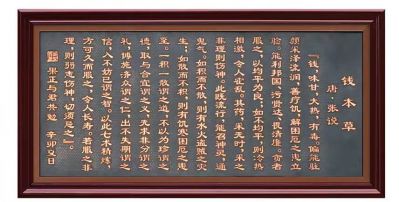 钱本草
唐·张说
『钱,味甘,大热,有毒。偏能驻
颜采泽流润,善疗饥,解困厄之患立
验。能利邦国、污贤达,畏清廉。贪者
服之,以均平为良;如不均平,则冷热
相激,令人霍乱。其药,采无时,采之
非理则伤神。此既流行,能召神灵,通
鬼气。如积而不散,则有水火盗贼之灾
生;如散而不积,则有饥寒困厄之患
至。一积一散谓之道,不以为珍谓之
德,取与合宜谓之义,无求非分谓之
礼,博施济众谓之仁,出不失期谓之
信,入不妨己谓之智。以此七术精炼,
方可久而服之,令人长寿。若服之非
理,则弱志伤神,切须忌之』。
与君共勉 辛卯